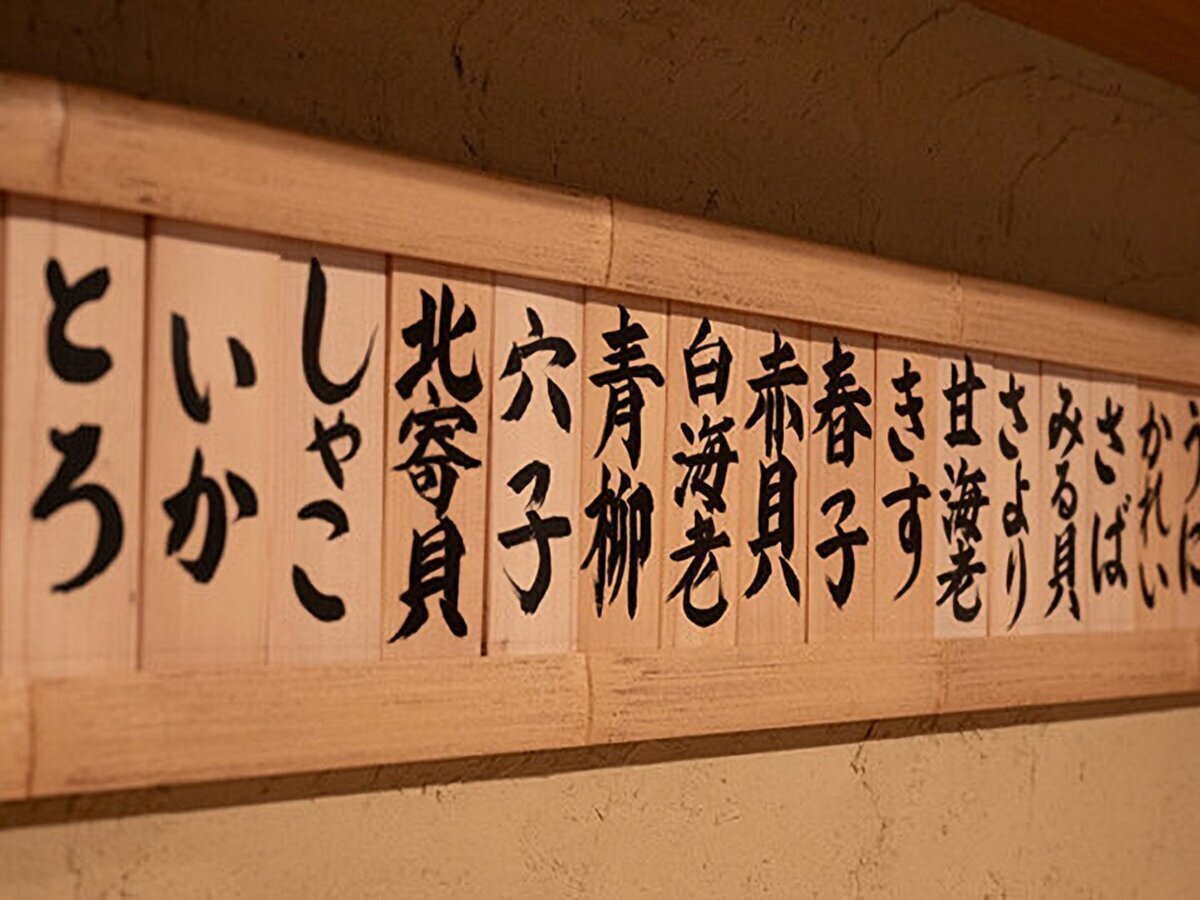 うに
かれい
さば
みる貝
さより
甘海老
きす
春子
赤貝
白海老
青柳
穴子
北寄貝
しゃこ
いか
とろ